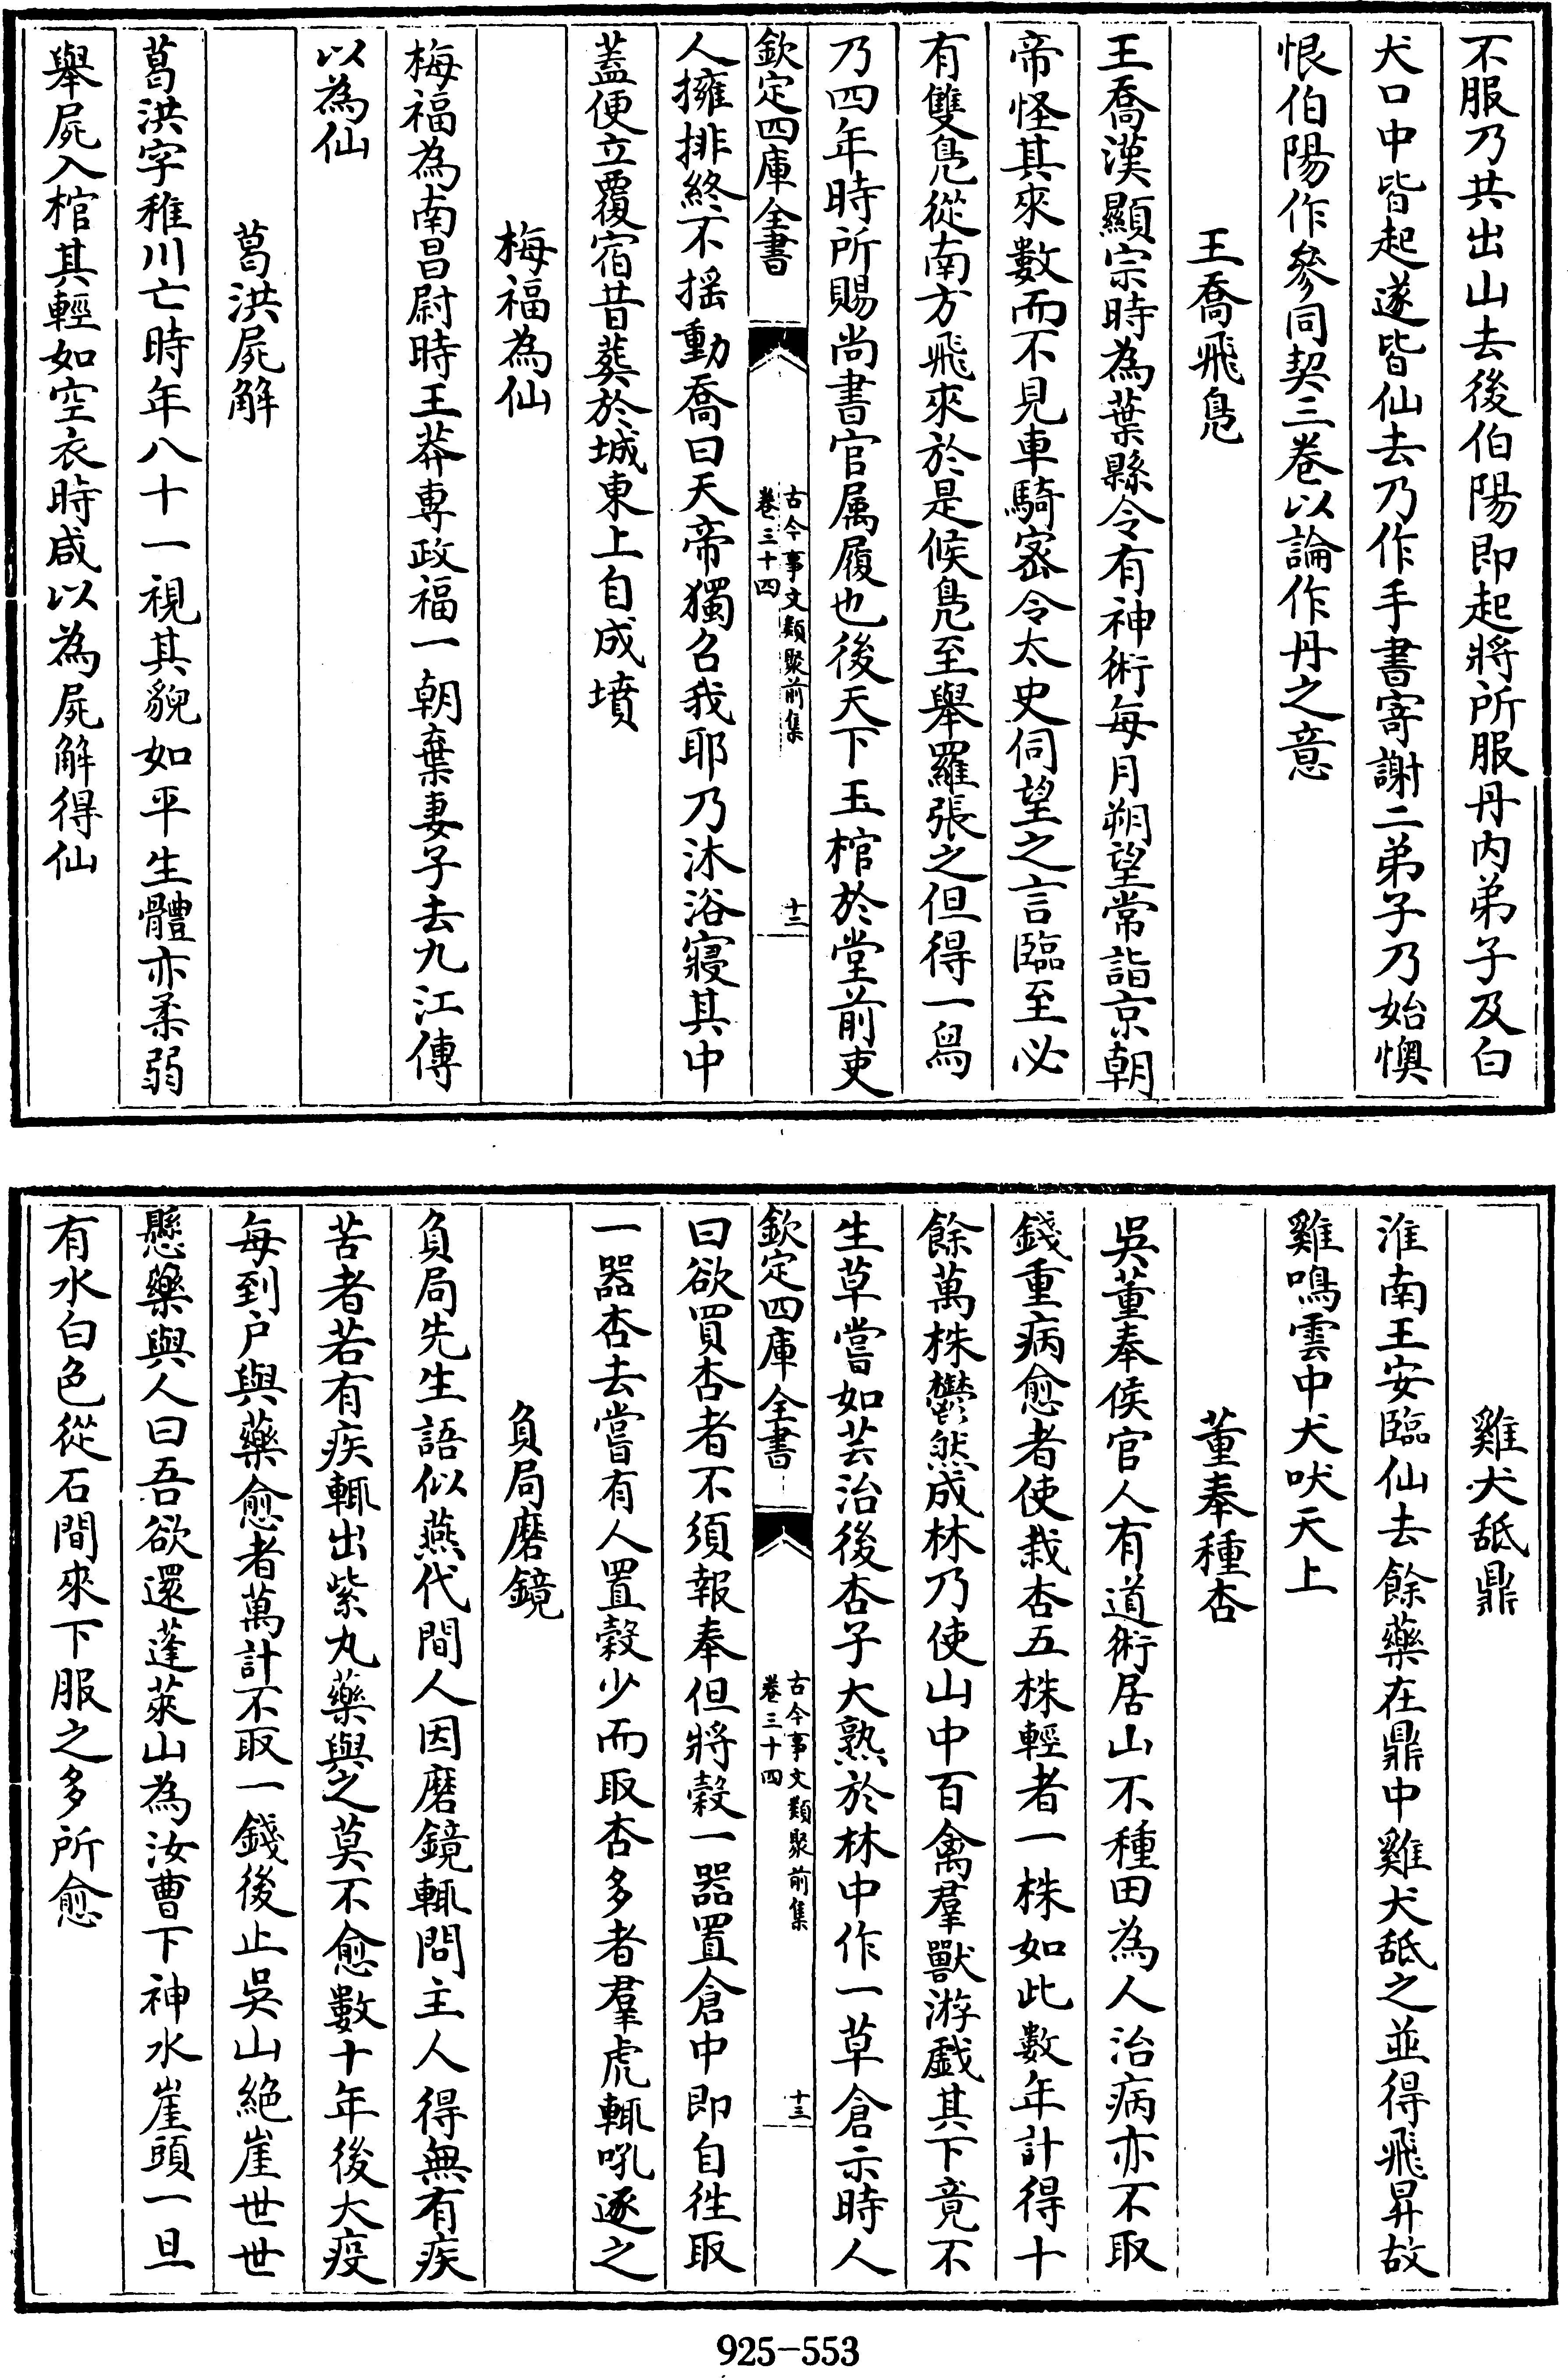 不服乃共出山去後伯陽即起將所服丹内弟子及白
犬口中皆起遂皆仙去乃作手書寄謝二弟子乃始懊
恨伯陽作參同契三卷以論作丹之意
王喬飛鳬
王喬漢顯宗時為葉縣令有神術每月朔望常詣京朝
帝怪其來數而不見車騎宻令太史伺望之言臨至必
有雙鳬從南方飛來於是候鳬至舉羅張之但得一舄
乃四年時所賜尚書官属履也後天下玉棺於堂前吏
欽定四庫全書
古今事文類聚前集
卷三十四
十二
人擁排終不揺動喬曰天帝獨召我耶乃沐浴寢其中
蓋便立覆宿昔葬於城東上自成墳
梅福為仙
梅福為南昌尉時王莽専政福一朝棄妻子去九江傳
以為仙
葛洪屍解
葛洪字稚川亡時年八十一視其貌如平生體亦柔弱
舉屍入棺其輕如空衣時咸以為屍解得仙
雞犬䑛鼎
淮南王安臨仙去餘藥在鼎中雞犬䑛之並得飛昇故
雞鳴雲中犬吠天上
董奉種杏
吳董奉侯官人有道術居山不種田為人治病亦不取
錢重病愈者使栽杏五株輕者一株如此數年計得十
餘萬株鬱然成林乃使山中百禽羣獸游戲其下竟不
生草嘗如芸治後杏子大熟於林中作一草倉示時人
欽定四庫全書
古今事文類聚前集
卷三十四
十三
曰欲買杏者不須報奉但將穀一器置倉中即自往取
一器杏去嘗有人置穀少而取杏多者羣虎輒吼逐之
負局磨鏡
負局先生語似燕代間人因磨鏡輒問主人得無有疾
苦者若有疾輒出紫丸藥與之莫不愈數十年後大疫
每到户與藥愈者萬計不取一錢後止吳山絶崖世世
懸藥與人曰吾欲還蓬萊山為汝曹下神水崖頭一旦
有水白色從石間來下服之多所愈
925-553